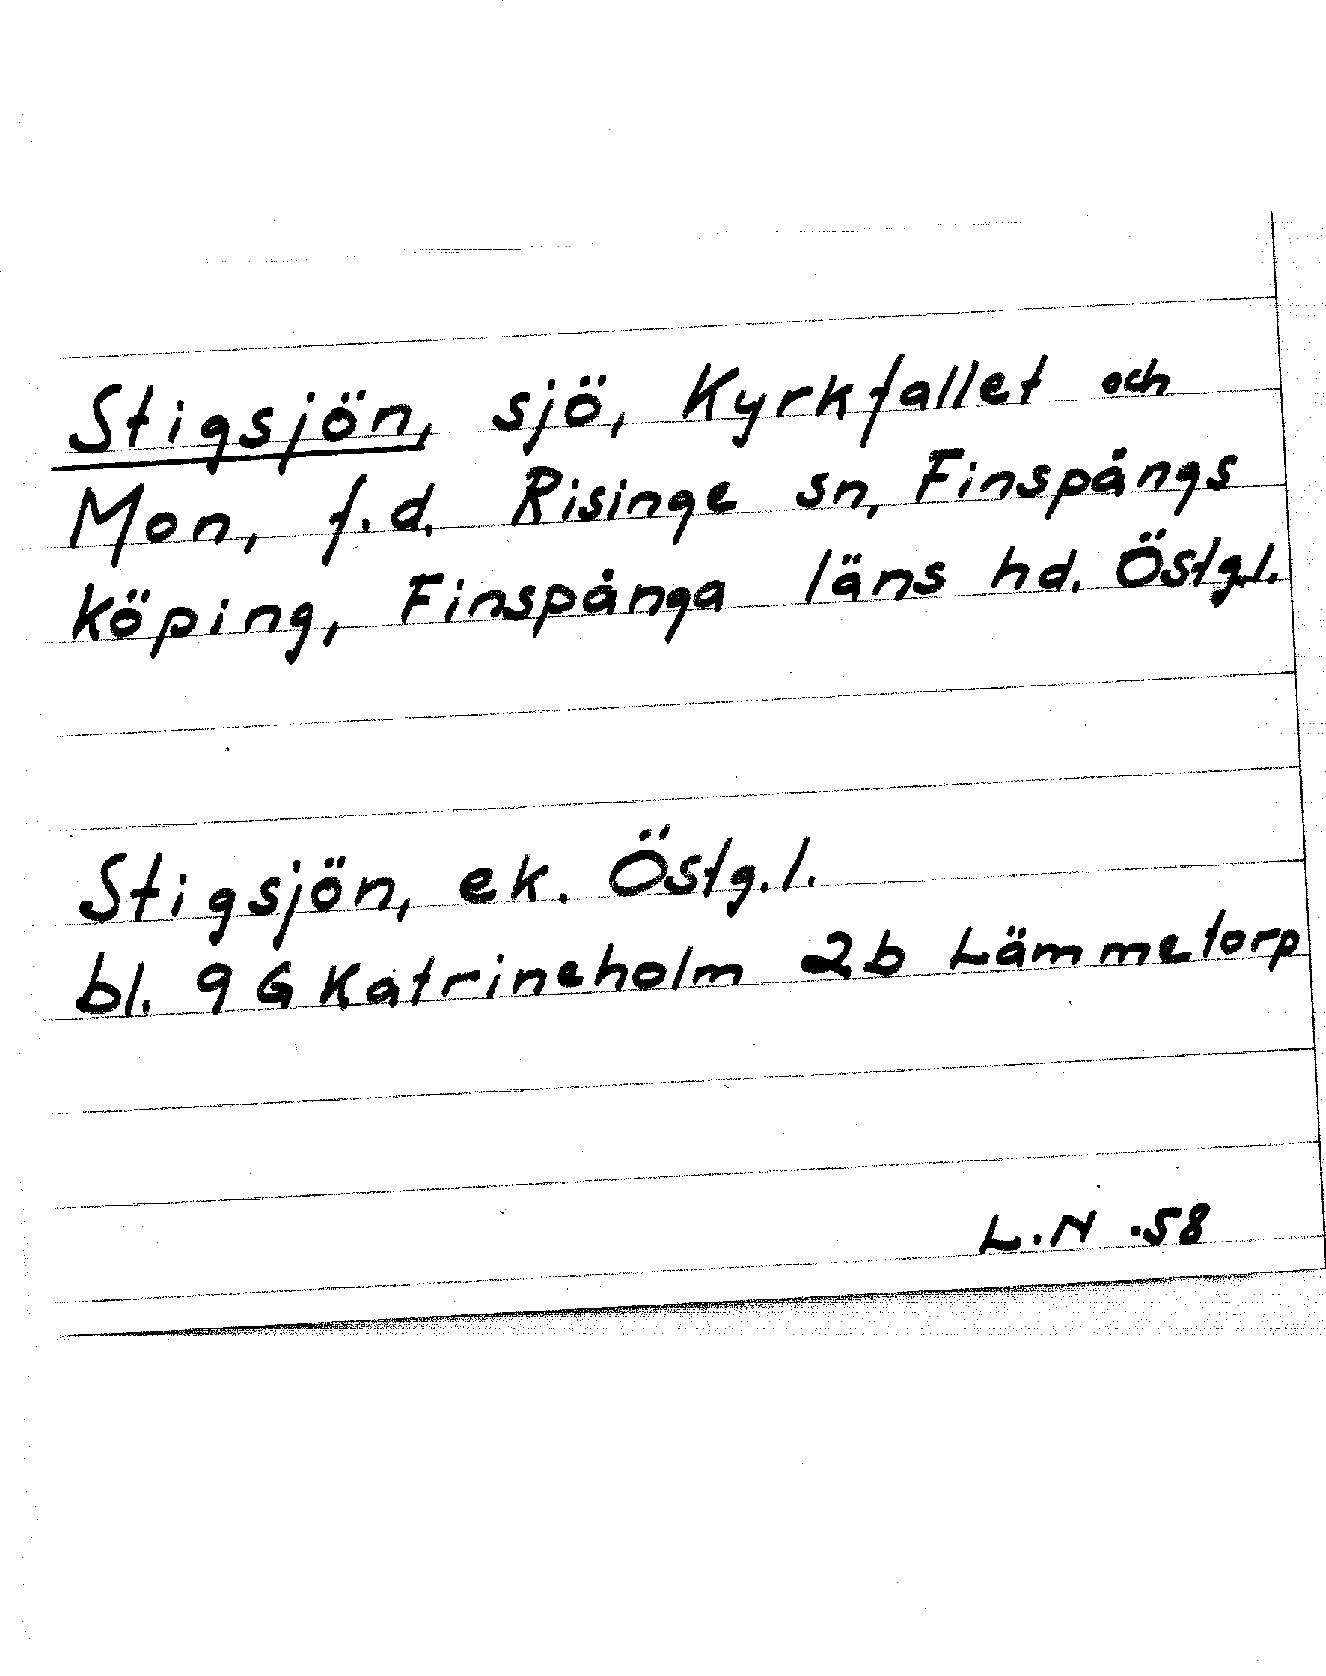 Stigsjön, sjö, Kyrkfallet och
Mon, f.d. Risinge sn, Finspångs
köping, Finspånga läns hd. Östg.l.
Stigsjön, ek. Östg.l.
bl. 9 G Katrineholm 2b Lämmetorp
L.N .58